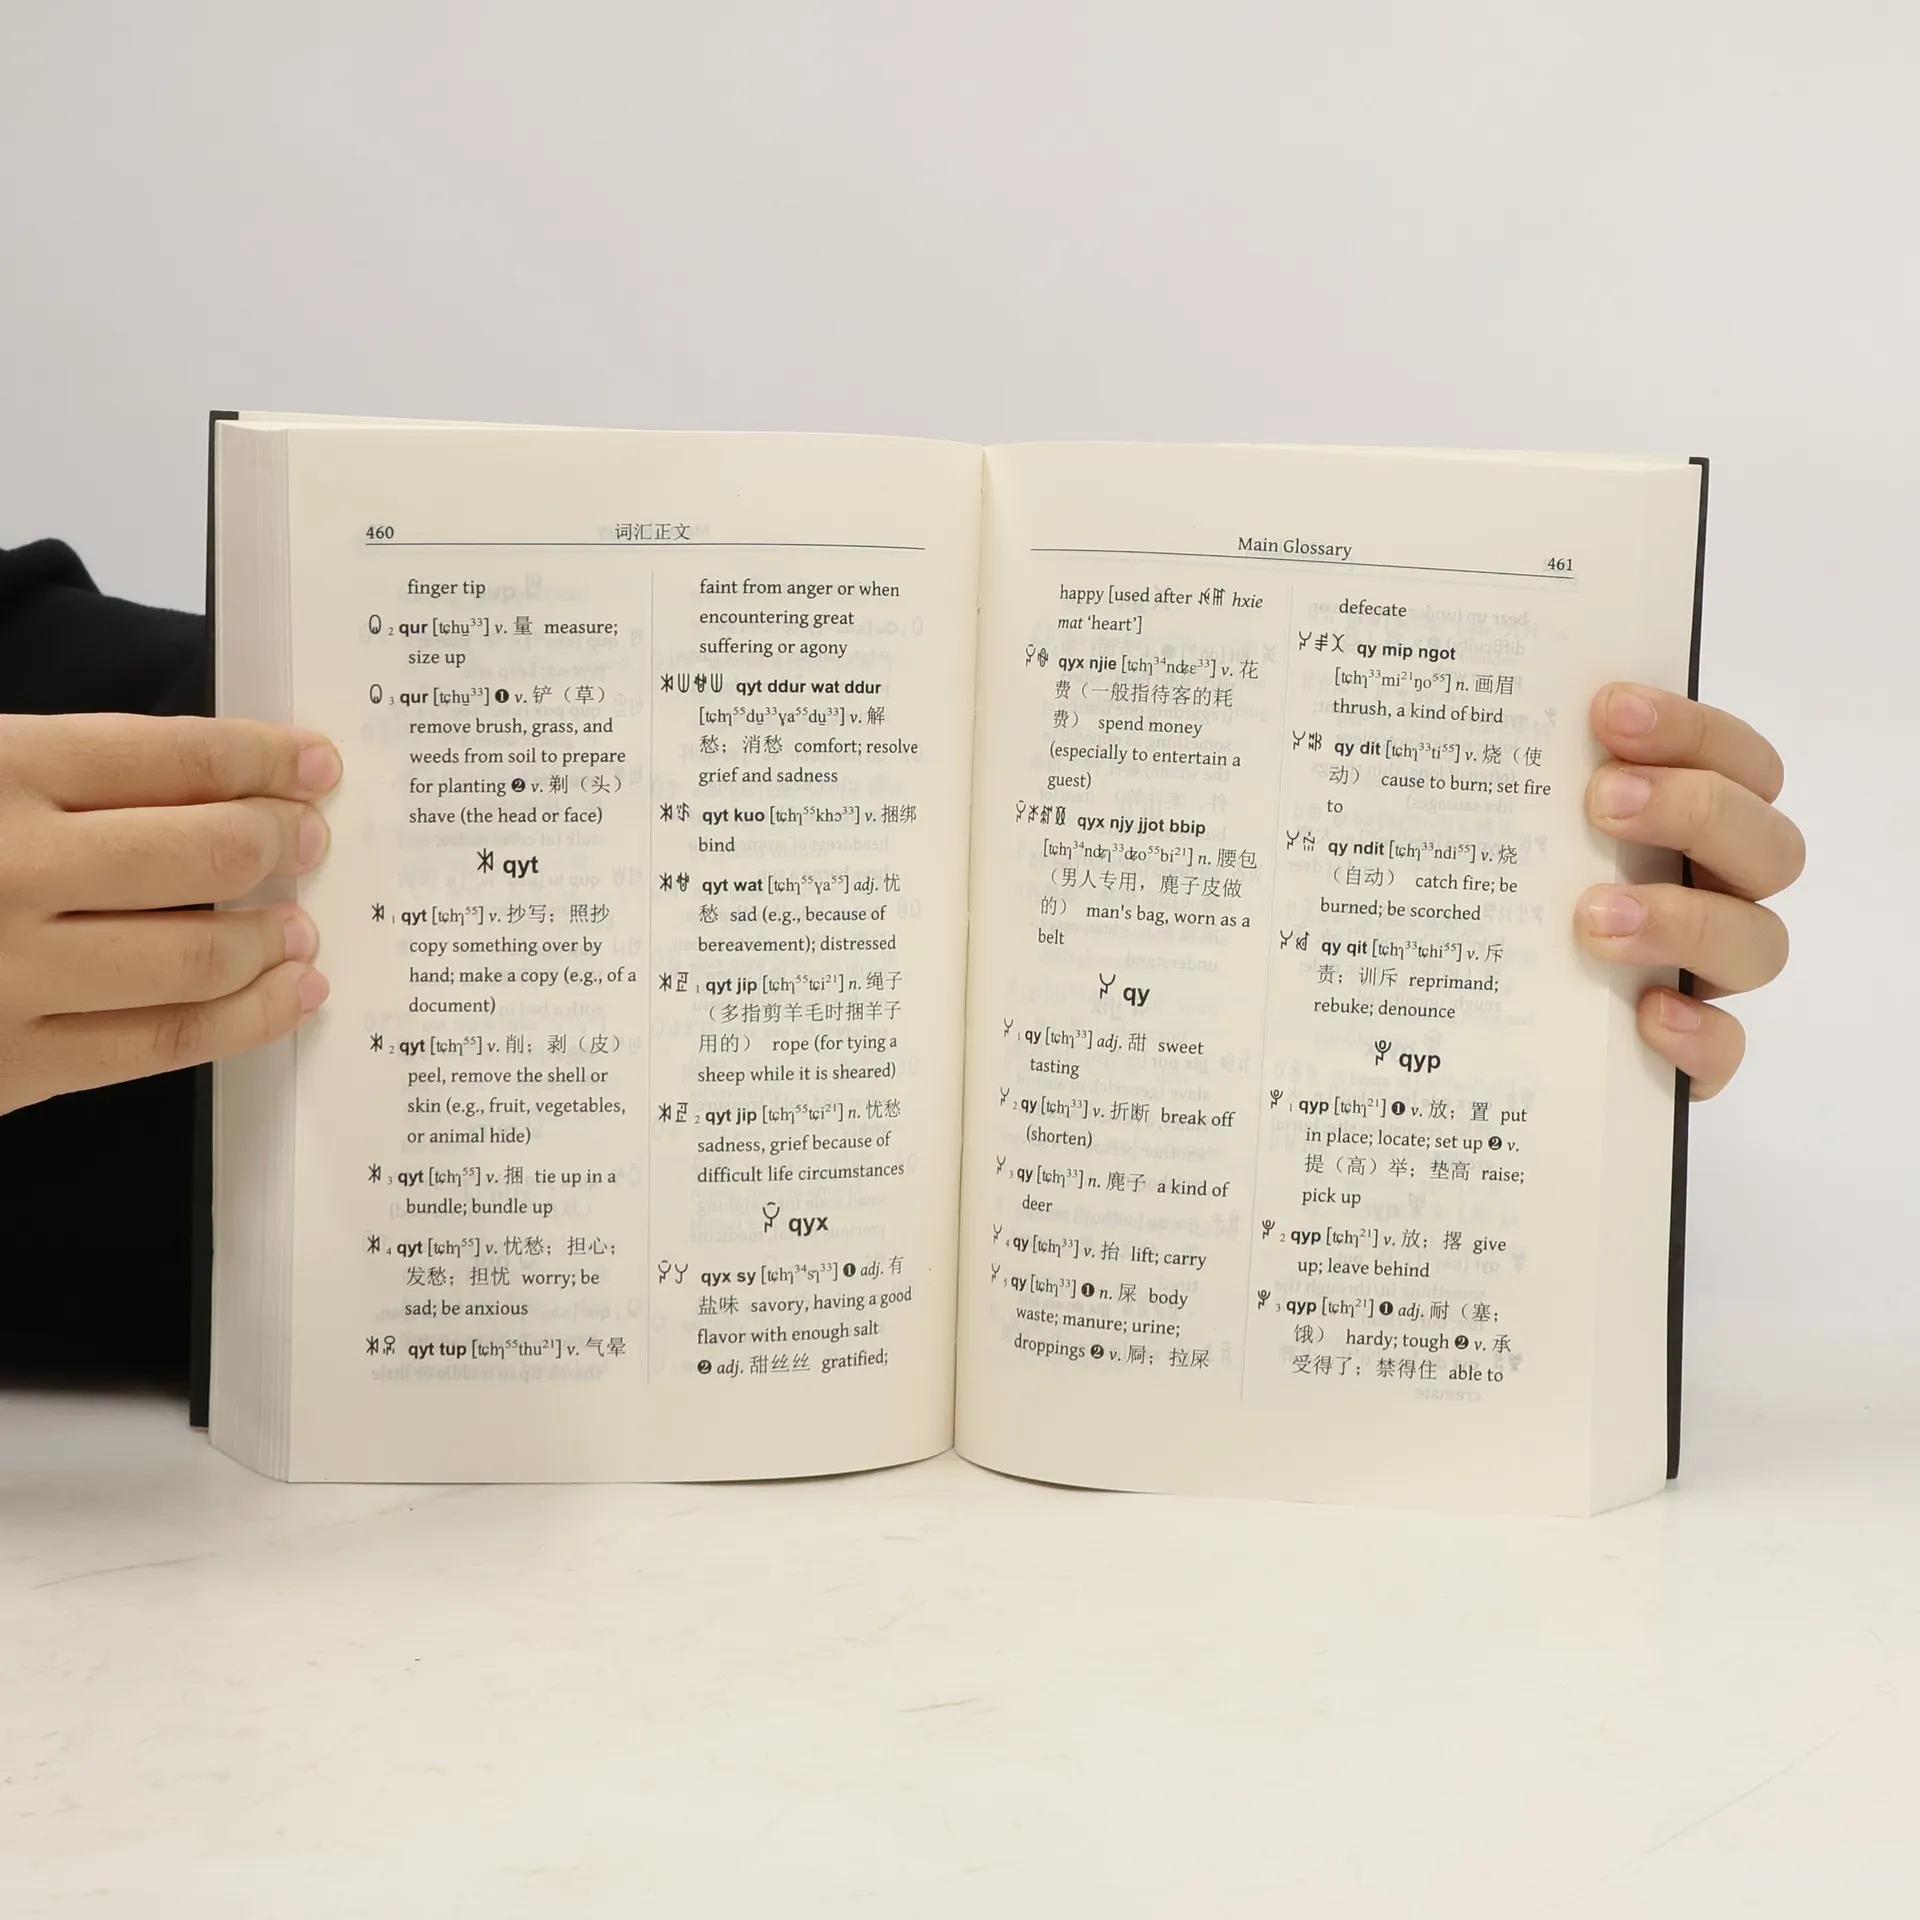 460 词汇正文
finger tip
ꐐ 2 qur [tɕhu̱³³] v. 量 measure;
size up
ꐐ 3 qur [tɕhu̱³³] ❶ v. 铲（草）
remove brush, grass, and
weeds from soil to prepare
for planting ❷ v. 剃（头）
shave (the head or face)
ꐑ qyt
ꐑ 1 qyt [tɕhɿ⁵⁵] v. 抄写；照抄
copy something over by
hand; make a copy (e.g., of a
document)
ꐑ 2 qyt [tɕhɿ⁵⁵] v. 削；剥（皮）
peel, remove the shell or
skin (e.g., fruit, vegetables,
or animal hide)
ꐑ 3 qyt [tɕhɿ⁵⁵] v. 捆 tie up in a
bundle; bundle up
ꐑ 4 qyt [tɕhɿ⁵⁵] v. 忧愁；担心；
发愁；担忧 worry; be
sad; be anxious
qyt tup [tɕhɿ⁵⁵thu²¹] v. 气晕
faint from anger or when
encountering great
suffering or agony
qyt ddur wat ddur
[tɕhɿ⁵⁵du̱³³ɣa⁵⁵du̱³³] v. 解
愁；消愁 comfort; resolve
grief and sadness
qyt kuo [tɕhɿ⁵⁵khɔ³³] v. 捆绑
bind
qyt wat [tɕhɿ⁵⁵ɣa⁵⁵] adj. 忧
愁 sad (e.g., because of
bereavement); distressed
1 qyt jip [tɕhɿ⁵⁵tɕi²¹] n. 绳子
（多指剪羊毛时捆羊子
用的） rope (for tying a
sheep while it is sheared)
2 qyt jip [tɕhɿ⁵⁵tɕi²¹] n. 忧愁
sadness, grief because of
difficult life circumstances
ꐒ qyx
qyx sy [tɕhɿ³⁴sɿ³³] ❶ adj. 有
盐味 savory, having a good
flavor with enough salt
❷ adj. 甜丝丝 gratified;
Main Glossary 461
happy [used after ꉌꂵ hxie
mat ‘heart’]
qyx njie [tɕhɿ³⁴ndʑɛ³³] v. 花
费（一般指待客的耗
费） spend money
(especially to entertain a
guest)
qyx njy jjot bbip
[tɕhɿ³⁴ndʑɿ³³dʑo⁵⁵bi²¹] n. 腰包
（男人专用，麂子皮做
的） man's bag, worn as a
belt
ꐓ qy
ꐓ 1 qy [tɕhɿ³³] adj. 甜 sweet
tasting
ꐓ 2 qy [tɕhɿ³³] v. 折断 break off
(shorten)
ꐓ 3 qy [tɕhɿ³³] n. 麂子 a kind of
deer
ꐓ 4 qy [tɕhɿ³³] v. 抬 lift; carry
ꐓ 5 qy [tɕhɿ³³] ❶ n. 屎 body
waste; manure; urine;
droppings ❷ v. 屙；拉屎
defecate
qy mip ngot
[tɕhɿ³³mi²¹ŋo⁵⁵] n. 画眉
thrush, a kind of bird
qy dit [tɕhɿ³³ti⁵⁵] v. 烧（使
动） cause to burn; set fire
to
qy ndit [tɕhɿ³³ndi⁵⁵] v. 烧
（自动） catch fire; be
burned; be scorched
qy qit [tɕhɿ³³tɕhi⁵⁵] v. 斥
责；训斥 reprimand;
rebuke; denounce
ꐔ qyp
ꐔ 1 qyp [tɕhɿ²¹] ❶ v. 放；置 put
in place; locate; set up ❷ v.
提（高）举；垫高 raise;
pick up
ꐔ 2 qyp [tɕhɿ²¹] v. 放；撂 give
up; leave behind
ꐔ 3 qyp [tɕhɿ²¹] ❶ adj. 耐（塞；
饿） hardy; tough ❷ v. 承
受得了；禁得住 able to